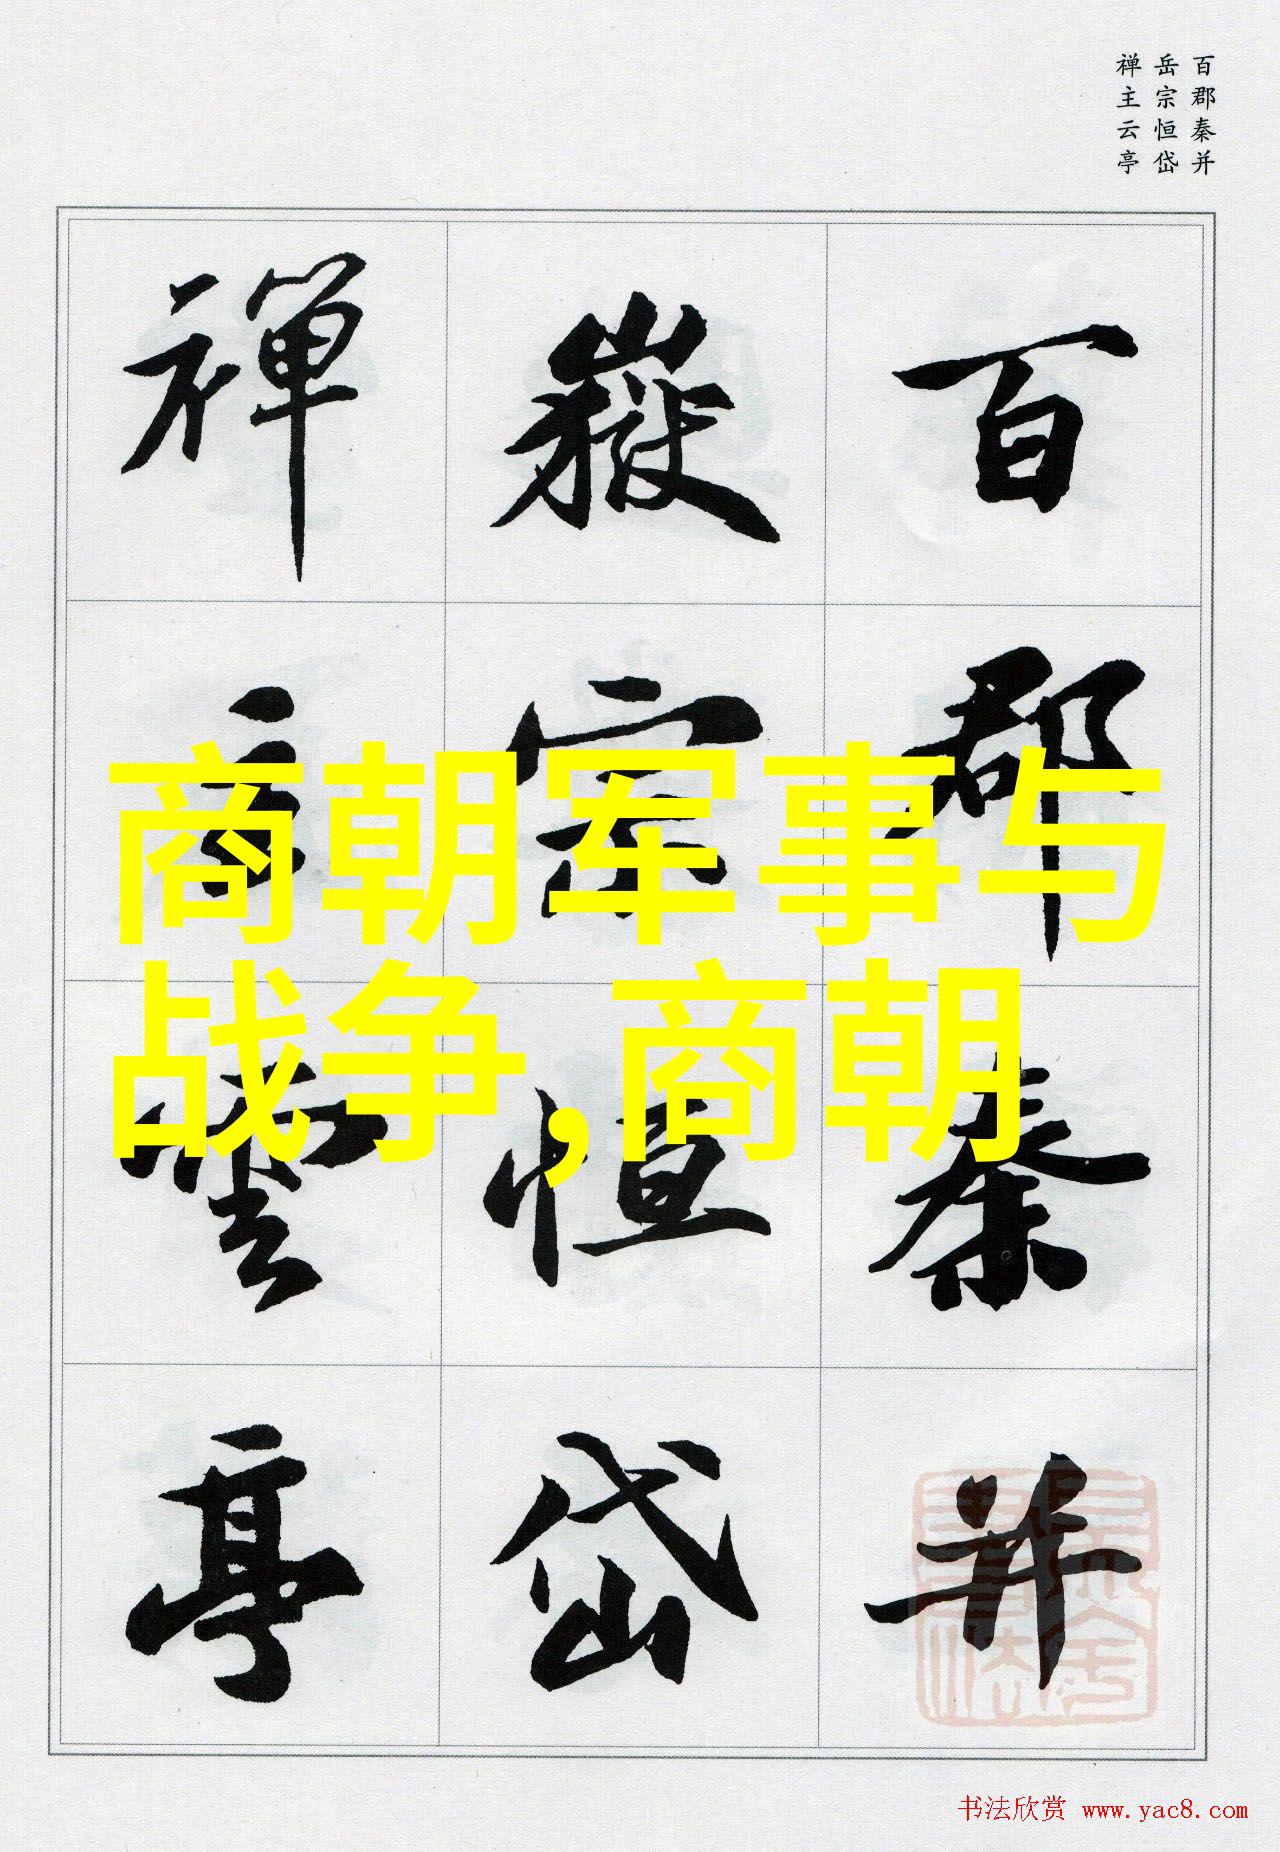 百郡秦并
岳宗恒岱
禅主云亭
百郡秦并
嶽宗恒岱
禅主雲亭
商朝军事与
战争,商朝
书法欣赏 www.yac8.com